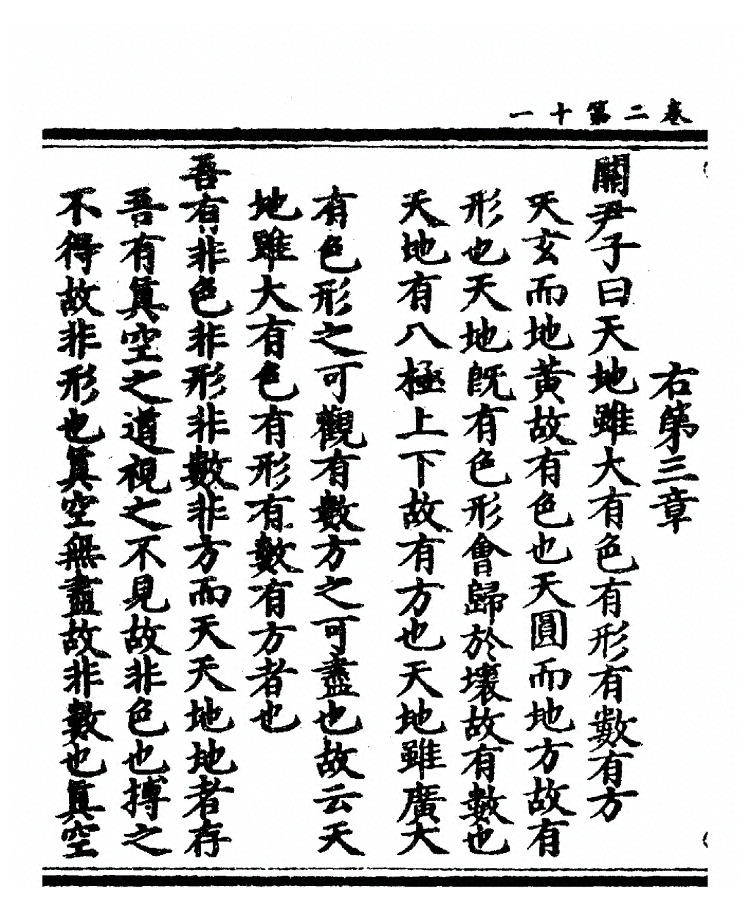 卷二第十一
右第三章
關尹子曰天地雖大有色有形有數有方
天玄而地黃故有色也天圓而地方故有
形也天地旣有色形會歸於壞故有數也
天地有八極上下故有方也天地雖廣大
有色形之可觀有數方之可盡也故云天
地雖大有色有形有數有方者也
吾有非色非形非數非方而天天地地者存
吾有眞空之道視之不見故非色也摶之
不得故非形也眞空無盡故非數也眞空